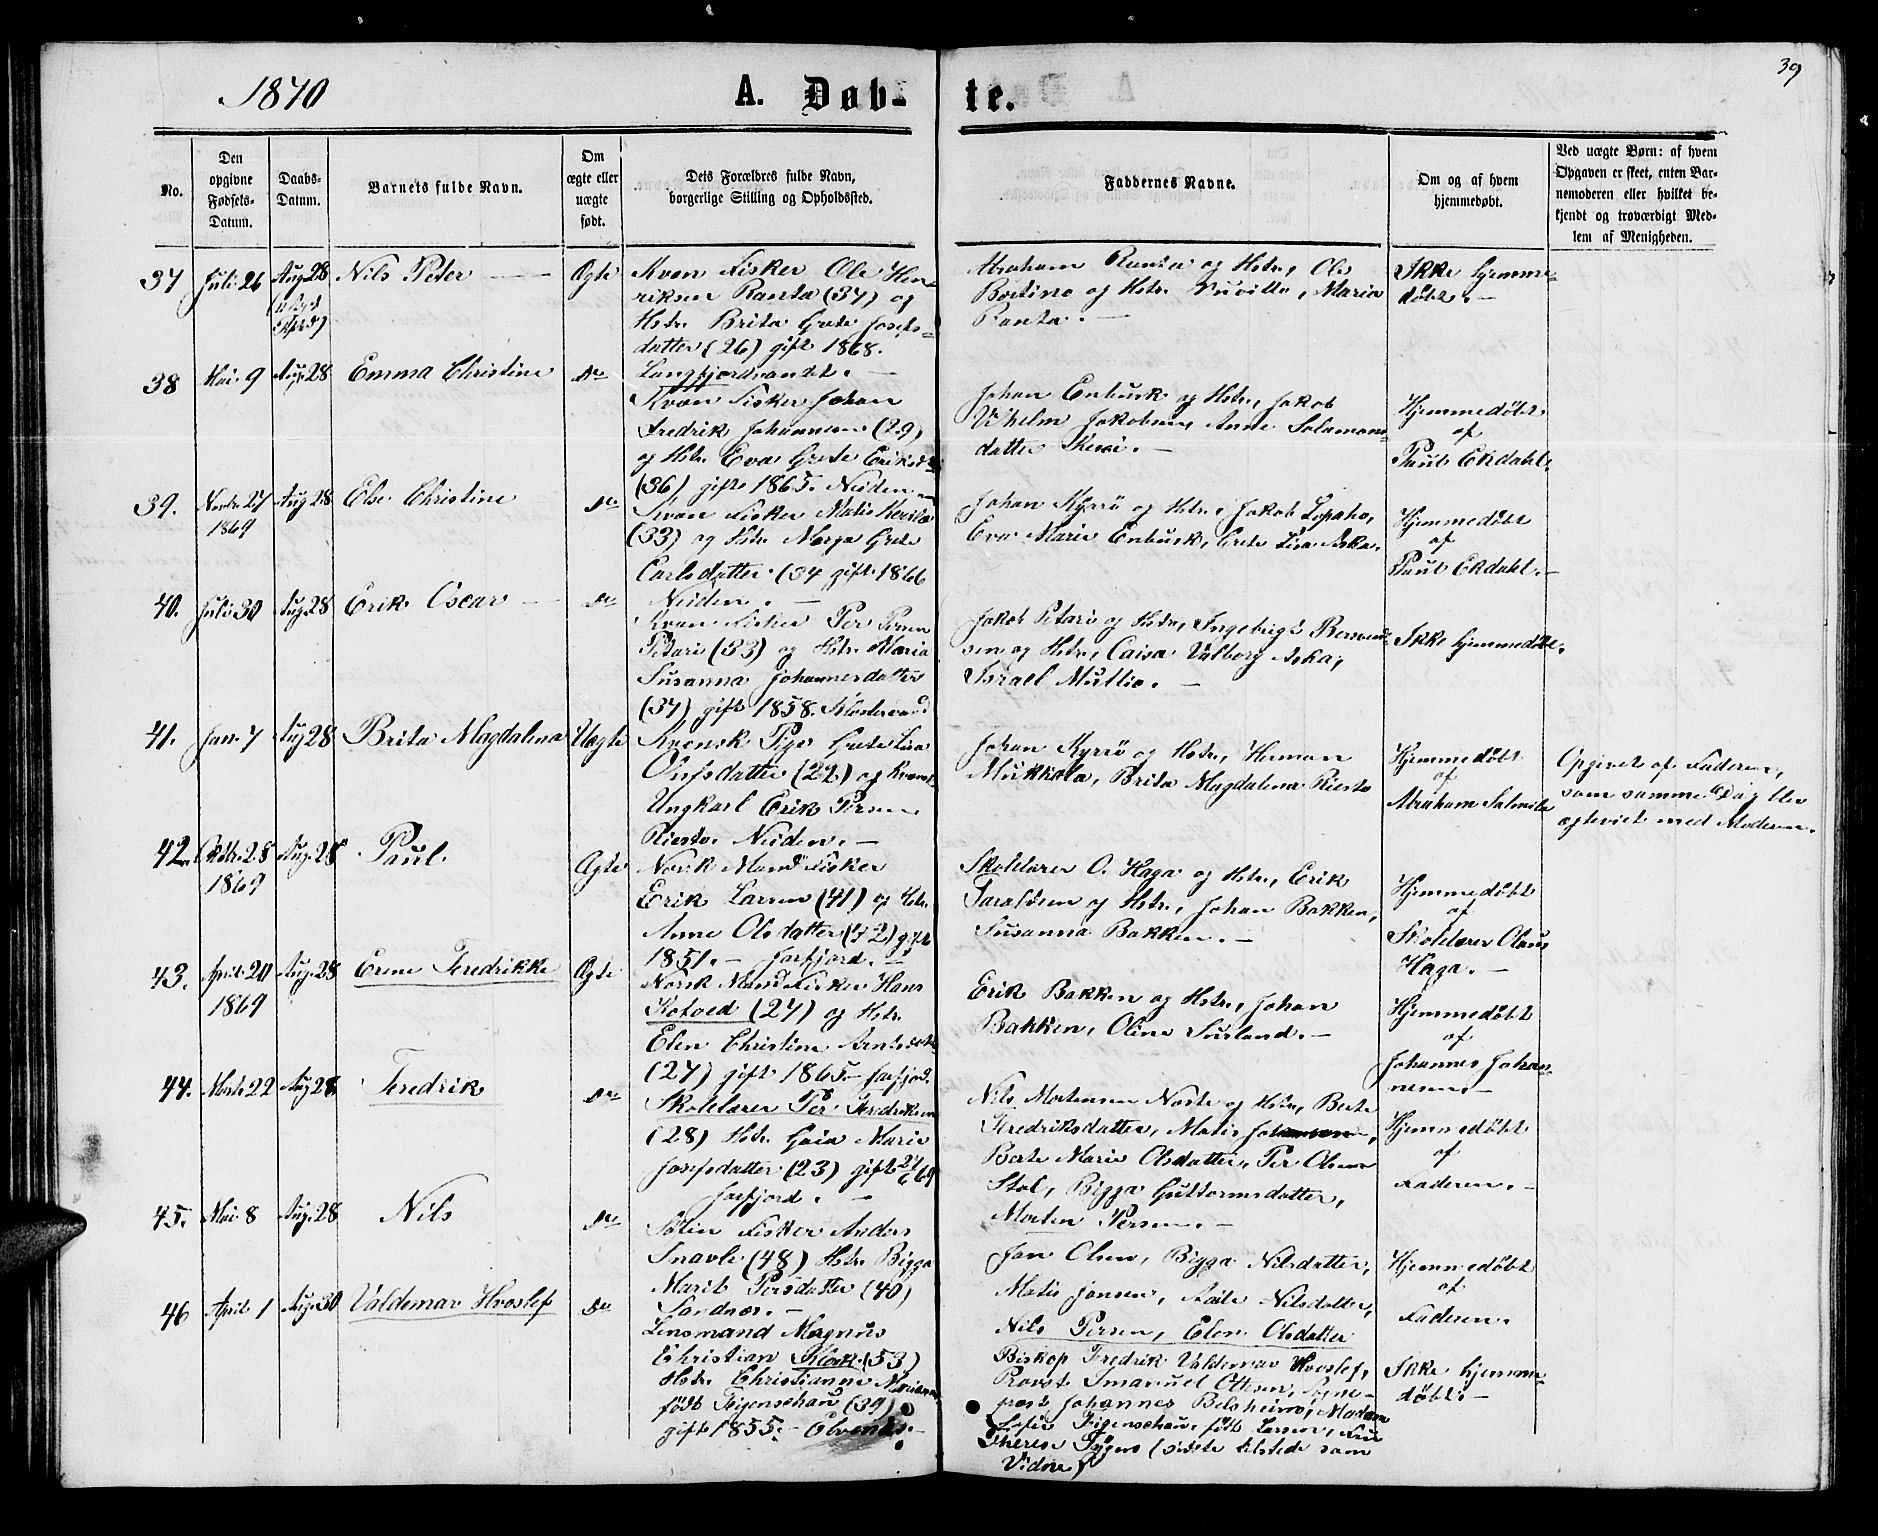 39
1870
A. Døb-
te.
No.
Den opgivne Fødsels-Datum.
Daabs-Datum.
Barnets fulde Navn.
Om ægte eller uægte født.
Dets Forældres fulde Navn,
borgerlige Stilling og Opholdssted.
Faddernes Navne.
Om og af hvem
hjemmedøbt.
Ved uægte Børn: af hvem
Opgaven er skeet, enten Bar-
nemoderen eller hvilket be-
kjendt og troværdigt Med-
lem af Menigheden.
37 Juli 26 Aug 28 Nils Peter Ægte
Kvæn Fisker Ole Hen-
riksen Ranta (37) og
Hstr. Brita Grete Josefs-
datter (26) gift 1868.
Langfjordvandet. -
Abraham Ranta og Hstr., Ole
og Hstr. Maria
Ranta. -
Ikke hjemme-
døbt. -
38 Mai 9 Aug. 28 Emma Christine Do
Kvæn Fisker Johan
Fredrik Johannesen (29)
og Hstr. Eva Grete Eriksd.
(36) gift 1865. Neiden
Johan Enbusk og Hstr., Jakob
Vilhelm Jakobsen, Anne Salamons-
datter -
Hjemmedøbt
af
Paul Ekdahl.
39. Novbr. 27 Aug 28 Else Christine Do
1869
Kvæn Fisker Matis
(33) og Hstr. Marja Grete
Carlsdatter (34 gift 1866
Neiden. -
Johan Kyrrö og Hstr., Jakob Lopaho,
Eva Marie Enbusk, Grete Lisa Aska.
Hjemmedøbt
af
Paul Ekdahl. -
40. Juli 30 Aug. 28 Erik Oscar Do
Kvæn Fisker Per Persen
Petari (33) og Hstr. Maria
Susanna Johannesdatter
(37) gift 1858. Klostervand
Jakob Petari og Hstr., Ingebrigt
sen og Hstr., Caisa Valborg Aska,
Israel Mullio. -
Ikke hjemmedøbt.
41. Jan. 7 Aug 28 Brita Magdalena Uægte
Kvensk Pige Grete Lisa
Olufsdatter (22) og Kvensk
Ungkarl Erik Persen
Riesto Neiden. -
Johan Kyrrö og Hstr., Herman
Mukkala, Brita Magdalena Riesto
Hjemmedøbt
af
Abraham Salmila
Opgivet af Faderen,
som samme Dag blev
ægteviet med Moderen.
42. Octbr. 28 Aug. 28 Paul Ægte
1869
Norsk Mand Fisker
Erik Larsen (41) og Hstr.
Anne Olsdatter (42) gift
1851. - Jarfjord. -
Skolelærer O. Haga og Hstr., Erik
Taraldsen og Hstr., Johan Bakken,
Susanna Bakken. -
Hjemmedøbt
af
Skolelærer Olaus
Haga. -
43. April 20 Aug. 28 Erene Feredrikke Ægte
1869
Norsk Mand Fisker Hans
Kotoed (27) og Hstr.
Elen Christine Arntsdatt.
(27) gift 1865 - Jarfjord.
Erik Bakken og Hstr., Johan
Bakken, Oline Susland. -
Hjemmedøbt
af
Johannes Johan-
nesen. -
44. Marts 22 Aug 28 Feredrik Do
Skolelærer Per Feredriksen
(28) Hstr. Gaia Marie
Josefsdatter (23) gift 27/6 69
Jarfjord. -
Nils Mortensen Noste og Hstr., Berte
Feredriksdatter, Matis
Berte Marie Olsdatter, Per Olsen
Stol, Bigga Guttormsdatter,
Morten Persen. -
Hjemmedøbt
af
Faderen. -
45. Mai 8 Aug. 28 Nils Do
Søfin Fisker Anders
Snavle (48) Hstr. Bigga
Marit Persdatter (40)
Sandnæs. -
Jon Olsen, Bigga Nilsdatter,
Matis Jonsen, Nilsdatter,
Nils Persen, Elen Olsdatter
Hjemmedøbt
af
Faderen.
46 April 1 Aug. 30 Valdemar Hvoslef Do
Lensmand Magnus
Christian Klerk (53)
Hstr. Christianne
født Figenschau (39)
gift 1855. - Elvenes. -
Biskop Fredrik Valdemar Hvoslef,
Provst Imanuel Ottesen, Sogne-
prest Johannes Belsheim, Madam
Lofis Figenschau, født Larsen, Frk.
Therese (sidste tilstede som
Vidne)
Ikke hjemme-
døbt. -